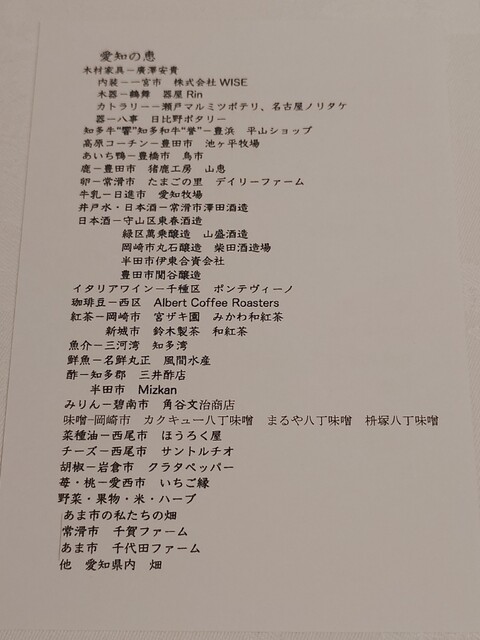 愛知の恵
木材家具－廣澤安貴
内装－一宮市　株式会社WISE
木器－鶴舞　器屋Rin
カトラリー－瀬戸マルミツポテリ、名古屋ノリタケ
器－八事　日比野ポタリー
知多牛“響”知多和牛“誉”－豊浜　平山ショップ
高原コーチン－豊田市　池ヶ平牧場
あいち鴨－豊橋市　鳥市
鹿－豊田市　猪鹿工房　山恵
卵－常滑市　たまごの里　デイリーファーム
牛乳－日進市　愛知牧場
井戸水・日本酒－常滑市澤田酒造
日本酒－守山区東春酒造
緑区萬乗醸造　山盛酒造
岡崎市丸石醸造　柴田酒造場
半田市伊東合資会社
豊田市関谷醸造
イタリアワイン－千種区　ポンテヴィーノ
珈琲豆－西区　Albert Coffee Roasters
紅茶－岡崎市　宮ザキ園　みかわ和紅茶
新城市　鈴木製茶　和紅茶
魚介－三河湾　知多湾
鮮魚－名鮮丸正　風間水産
酢－知多郡　三井酢店
半田市　Mizkan
みりん－碧南市　角谷文治商店
味噌-岡崎市　カクキュー八丁味噌　まるや八丁味噌　枡塚八丁味噌
菜種油－西尾市　ほうろく屋
チーズ－西尾市　サントルチオ
胡椒－岩倉市　クラタペッパー
苺・桃－愛西市　いちご縁
野菜・果物・米・ハーブ
あま市の私たちの畑
常滑市　千賀ファーム
あま市　千代田ファーム
他　愛知県内　畑